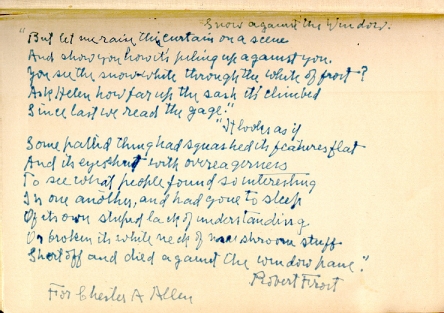 Snow against the Window.
"But let me raise the curtain on a scene
And show you how it's piling up against you.
You see the snow-white through the white of frost?
Ask Helen how far up the sash it's climbed
Since last we read the gage."
"It looks as if
Some pallid thing had squashed its features flat
And its eyes shut with overeagerness
To see what people found so interesting
In one another, and had gone to sleep
Of its own stupid lack of understanding,
Or broken its white neck of mushroom stuff
Short off and died against the window pane."
Robert Frost
For Chester A Allen